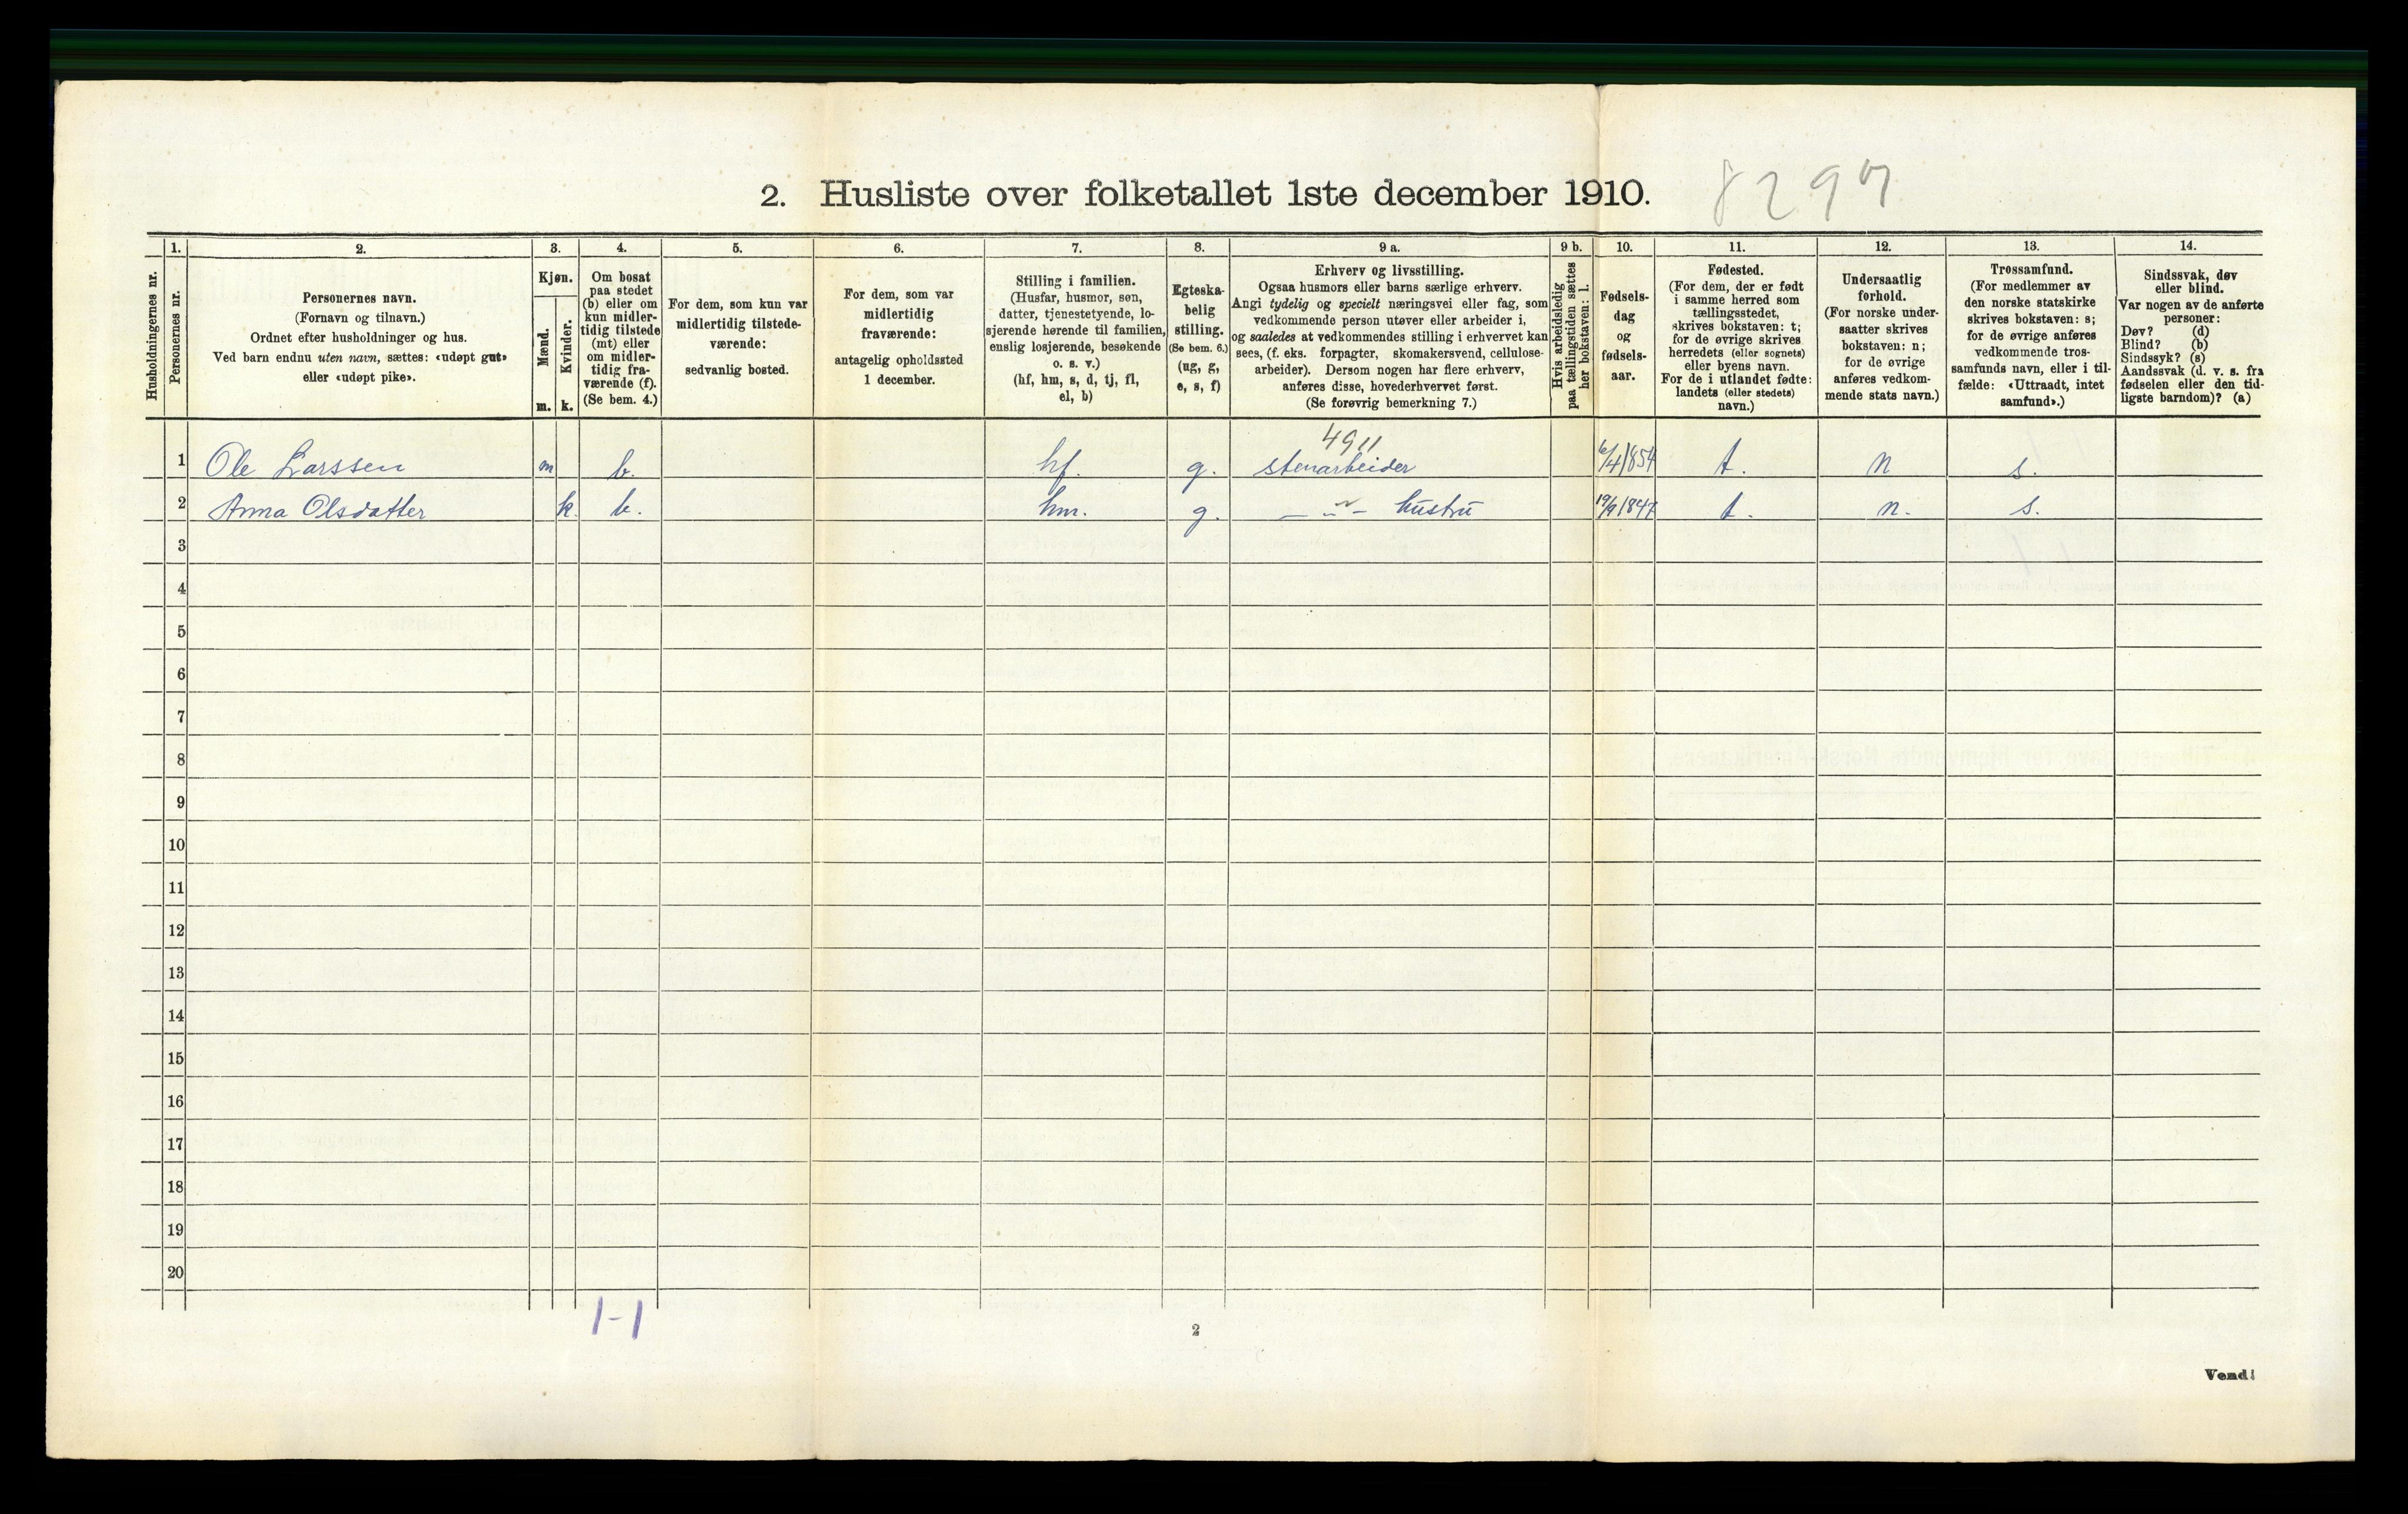 2. Husliste over folketallet 1ste december 1910.
8297
Husholdningernes nr.
1.
Personernes nr.
2.
Personernes navn.
(Fornavn og tilnavn.)
Ordnet efter husholdninger og hus.
Ved barn endnu uten navn, sættes: «udøpt gut»
eller «udøpt pike».
3.
Kjøn.
Mænd.
Kvinder.
m.
k.
4.
Om bosat
paa stedet
(b) eller om
kun midler-
tidig tilstede
(mt) eller
om midler-
tidig fra-
værende (f).
(Se bem. 4.)
5.
For dem, som kun var
midlertidig tilstede-
værende:
sedvanlig bosted.
6.
For dem, som var
midlertidig
fraværende:
antagelig opholdssted
1 december.
7.
Stilling i familien.
(Husfar, husmor, søn,
datter, tjenestetyende, lo-
sjerende hørende til familien,
enslig losjerende, besøkende
o. s. v.)
(hf, hm, s, d, tj, fl,
el, b)
8.
Egteska-
belig
stilling.
(Se bem. 6.)
(ug, g,
e, s, f)
9 a.
Erhverv og livsstilling.
Ogsaa husmors eller barns særlige erhverv.
Angi tydelig og specielt næringsvei eller fag, som
vedkommende person utøver eller arbeider i,
og saaledes at vedkommendes stilling i erhvervet kan
sees, (f. eks. forpagter, skomakersvend, cellulose-
arbeider). Dersom nogen har flere erhverv,
anføres disse, hovederhvervet først.
(Se forøvrig bemerkning 7.)
9 b.
Hvis arbeidsledig
paa tællingstiden sættes
her bokstaven: l.
10.
Fødsels-
dag
og
fødsels-
aar.
11.
Fødested.
(For dem, der er født
i samme herred som
tællingsstedet,
skrives bokstaven: t;
for de øvrige skrives
herredets (eller sognets)
eller byens navn.
For de i utlandet fødte:
landets (eller stedets)
navn.)
12.
Undersaatlig
forhold.
(For norske under-
saatter skrives
bokstaven: n;
for de øvrige
anføres vedkom-
mende stats navn.)
13.
Trossamfund.
(For medlemmer av
den norske statskirke
skrives bokstaven: s;
for de øvrige anføres
vedkommende tros-
samfunds navn, eller i til-
fælde: «Uttraadt, intet
samfund».)
14.
Sindssvak, døv
eller blind.
Var nogen av de anførte
personer:
Døv? (d)
Blind? (b)
Sindssyk? (s)
Aandssvak (d. v. s. fra
fødselen eller den tid-
ligste barndom)? (a)
4911
1 Ole Larssen m b. hf. g. stenarbeider 6/4 1854 t. n s.
2 Anna Olsdatter k. b. hm. g. — " — hustru 19/9 1847 t. n. s.
3
4
5
6
7
8
9
10
11
12
13
14
15
16
17
18
19
20
1-1
2
Vend!